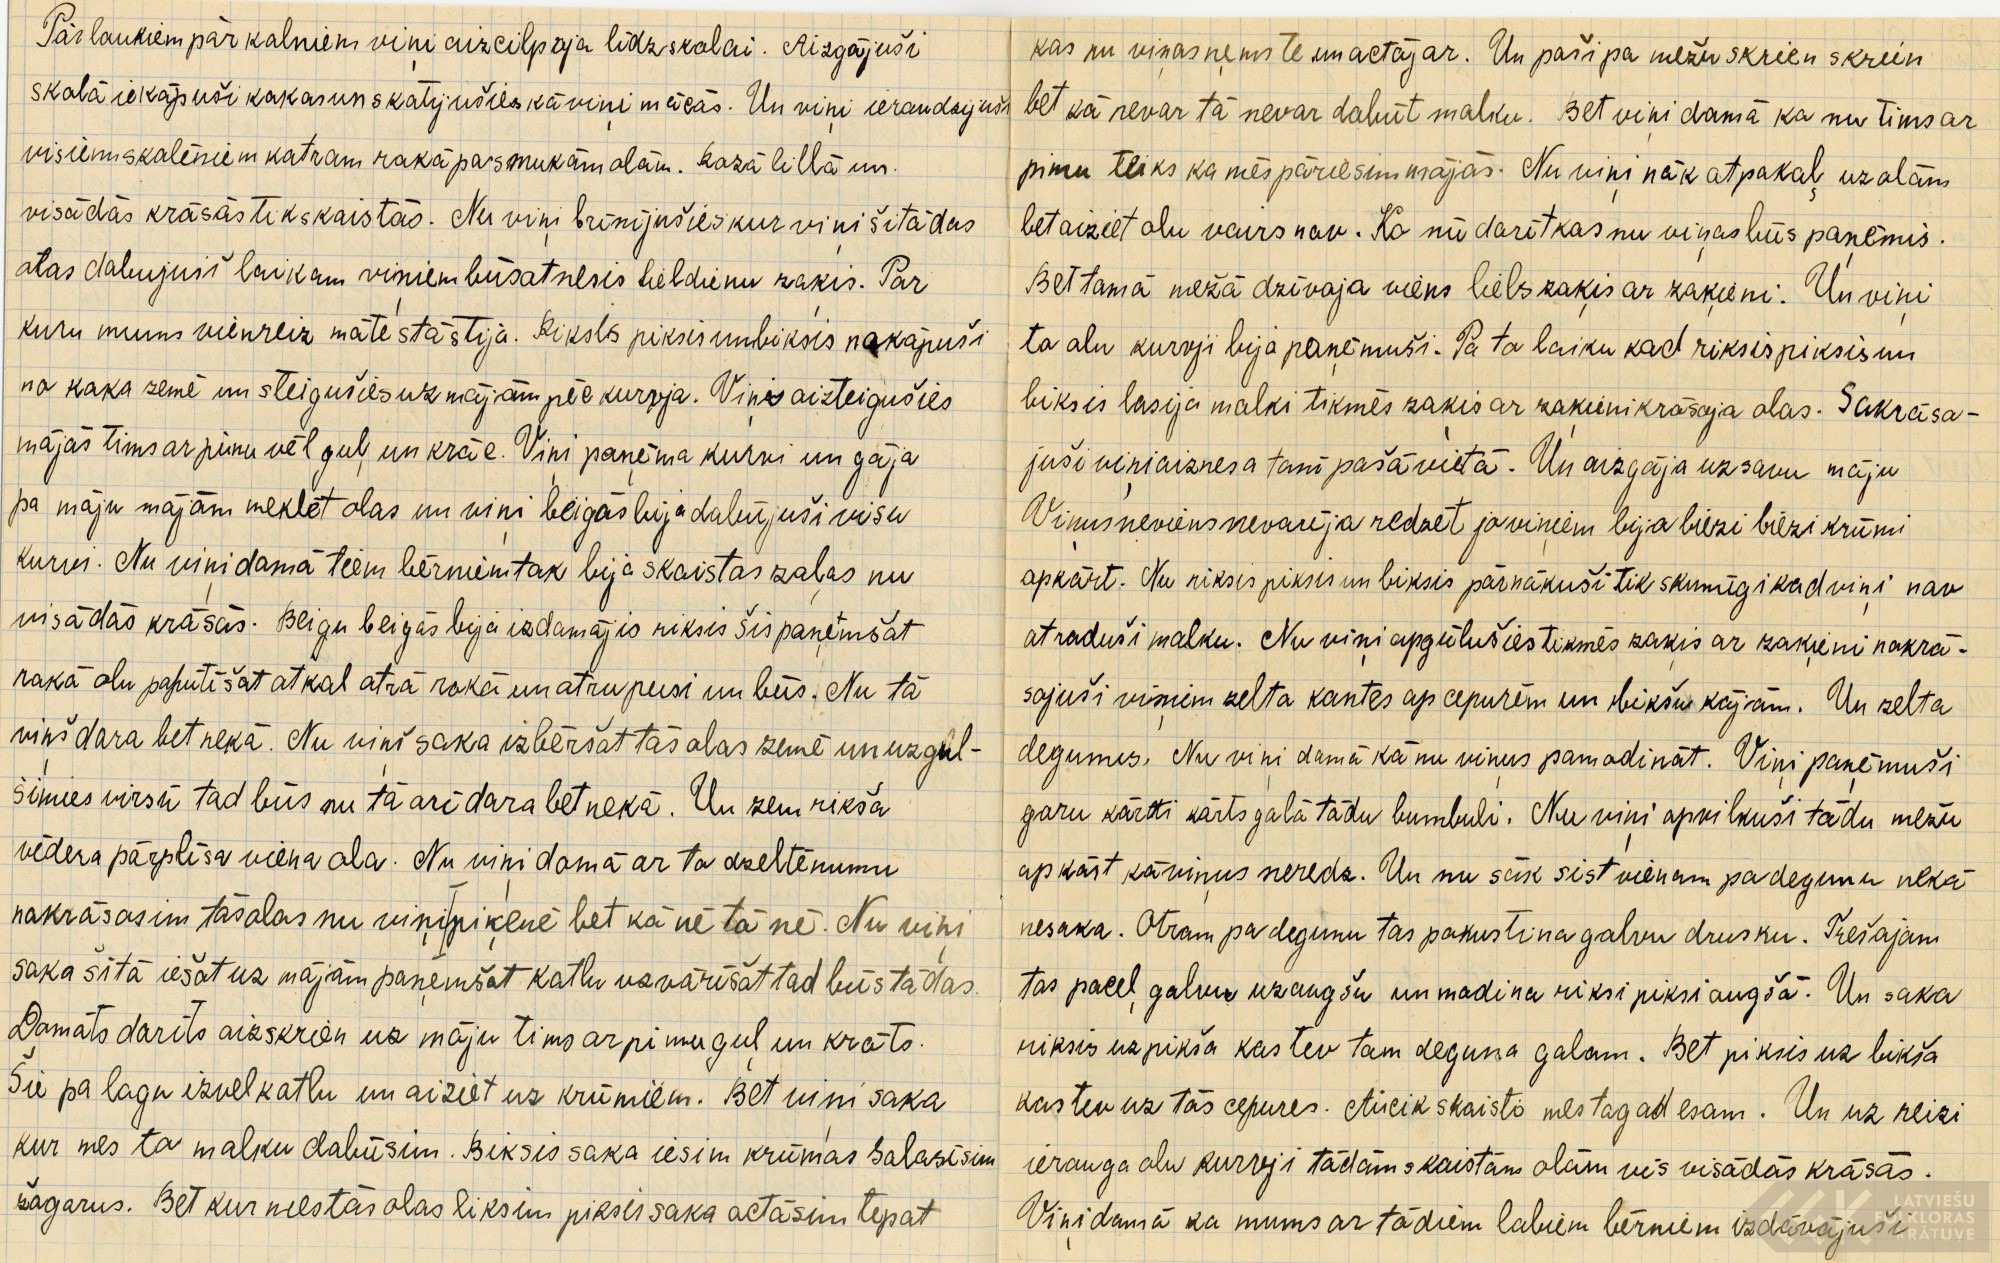 Pār laukiem pār kalniem viņi aizcilpoja līdz skolai. Aizgājuši
skolā iekāpuši kokos un skatījušies kā viņi mācās. Un viņi ieraudzījuši
visiem skolēniem katram rokā pa smukām olām. Rozā lillā un
visādās krāsās tik skaistās. Nu viņi brīnījušies kur viņi šitādas
olas dabujuši laikam viņiem būs atnesis lieldienu zaķis. Par
kuru mums vienreiz māte stāstīja. Riksis piksis un biksis nokāpuši
no koka zemē un steigušies uz mājām pēc kurvja. Viņi aizteigušies
mājās tims ar pimu vēl guļ un krāc. Viņi paņēma kurvi un gāja
pa māju mājām meklēt olas un viņi beigās bija dabūjuši visu
kurvi. Nu viņi domā tiem bērniem tak bija skaistas zaļas nu
visādās krāsās. Beigu beigās bija izdomājis riksis šis paņemšat
rokā olu paputīšat atkal otrā rokā un otru pusi un būs. Nu tā
viņš dara bet nekā. Nu viņš saka izbēršat tās olas zemē un uzgul-
simies virsū tad būs nu tā arī dara bet nekā. Un zem rikša
vēdera pārplīsa viena ola. Nu viņi domā ar to dzeltēnumu
nokrāsosim tās olas nu viņi piķenē bet kā nē tā nē. Nu viņi
saka šitā iešat uz mājām paņemšat katlu uzvārīšat tad būs tādas.
Domāts darīts aizskrien uz māju tims ar pimu guļ un krāts.
Šie pa logu izvel katlu un aiziet uz krūmiem. Bet viņi saka
kur mēs to malku dabūsim. Biksis saka iesim krūmos salasīsim
žagarus. Bet kur mēs tās olas liksim piksis saka actāsim tepat
kas nu viņas ņems te un actāj ar. Un paši pa mežu skrien skrein
bet kā nevar tā nevar dabūt malku. Bet viņi domā ka nu tims ar
pimu teiks ka mēs pāriesim mājās. Nu viņi nāk atpakaļ uz olām
bet aiziet olu vairs nav. Ko nū darīt kas nu viņas būs paņēmis.
Bet tamā mežā dzīvoja viens liels zaķis ar zaķieni. Un viņi
to olu kurvji bija paņēmuši. Pa to laiku kad riksis piksis un
biksis lasija malki tikmēs zaķis ar zaķieni krāsoja olas. Sakrāso-
juši viņi aiznesa tanī pašā vietā. Un aizgāja uz savu māju
Viņus neviens nevarēja redzēt jo viņiem bija biezi biezi krūmi
apkārt. Nu riksis piksis un biksis pārnākuši tik skumīgi kad viņi nav
atraduši malku. Nu viņi apgūlušies tikmēs zaķis ar zaķieni nokrā-
sojuši viņiem zelta kantes ap cepurēm un bikšu kājām. Un zelta
degunus. Nu viņi domā kā nu viņus pamodināt. Viņi paņēmuši
garu kārtti kārts galā tādu bumbuli. Nu viņi apvilkuši tādu mežu
apkārt kā viņus neredz. Un nu sāk sist vienam pa degunu nekā
nesaka. Otram pa degunu tas pakustina galvu drusku. Trešajam
tas paceļ galvu uz augšu un modina riksi piksi augšā. Un saka
riksis uz pikša kas tev tam deguna galam. Bet piksis uz bikša
kas tev uz tās cepures. Aūcik skaisti mēs tagad esam. Un uz reizi
ierauga olu kurvji tādām skaistām olām vis visādās krāsās.
Viņi domā ka mums ar tādiem labiem bērniem izdāvājuši
LATVIEŠU
FOLKLORAS
KRĀTUVE